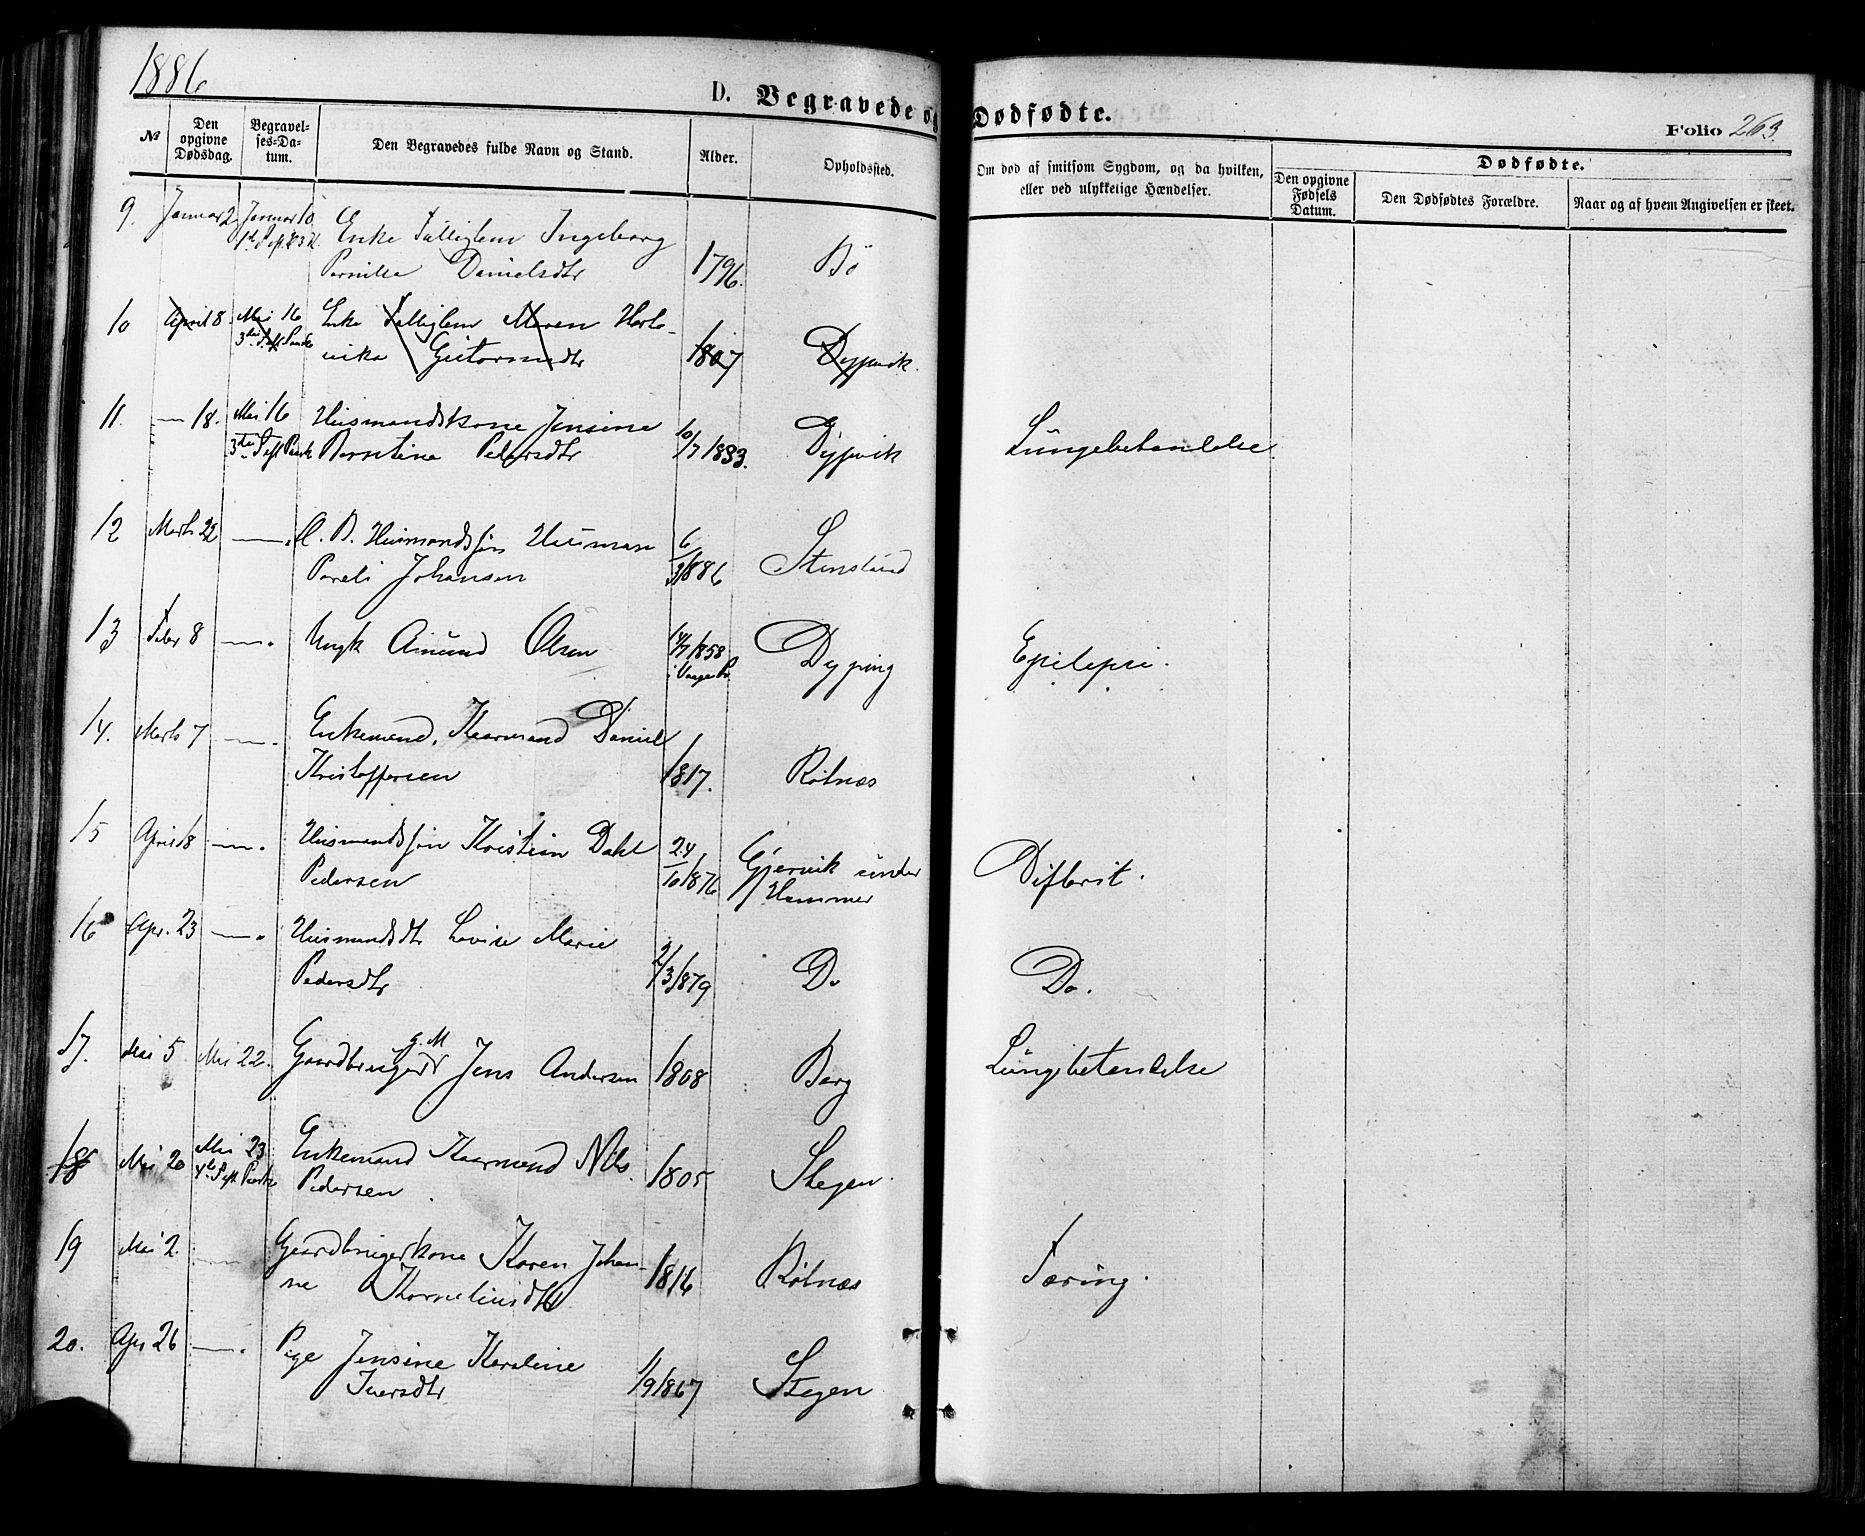 1886
D. Begravede og Dødfødte.
Folio 263.
№
Den opgivne Dødsdag.
Begravelses-Datum.
Den Begravedes fulde Navn og Stand.
Alder.
Opholdssted.
Om død af smitsom Sygdom, og da hvilken, eller ved ulykkelige Hændelser.
Dødfødte.
Den opgivne Fødsels Datum.
Den Dødfødtes Forældre.
Naar og af hvem Angivelsen er skeet.
9. Januar 2 Januar 10, Enke Fattiglem Ingeborg
Pernilla Danielsdtr 1796. Bö
10 April 8. Mai 16 Enke Fattiglem Maren
3die Paaske 1807 Dypvik.
11. — 18. Mai 16 Husmandskone Jensine
3die Paask Berntine Pedersdtr 10/7 1833. Dypvik Lungebetendelse.
12 Marts 22 — Husmandssøn
Pareli Johansen 6/3 1886 Stensland
13 Febr 8 — Ungk Amund Olsen 1858 Dypping Epilepsi.
14. Marts 7 — Enkemand, Kaarmand Daniel
Kristoffersen 1817. Rötnæs
15 April 18 — Husmandssøn Kristian Dahl
Pedersen 24/10 1876 Gjervik under
Hammer Difterit.
16 Apr. 23 — Husmandsdtr Lovise Marie
Pedersdtr 2/3 1879 Do Do.
17. Mai 5 Mai 22. Gaardbruger G.M Jens Andersen 1808 Berg Lungebetendelse
18 Mai 20 Mai 23 Enkemand Kaarmand Nils
Pedersen 1805 Stegen.
19 Mai 2. — Gaardbrugerkone Karen Johan-
ne Korneliusdtr 1816 Rötnæs Tæring.
20. Apr 26 — Pige Jensine Karoline
Iversdtr 1/9 1867 Stegen